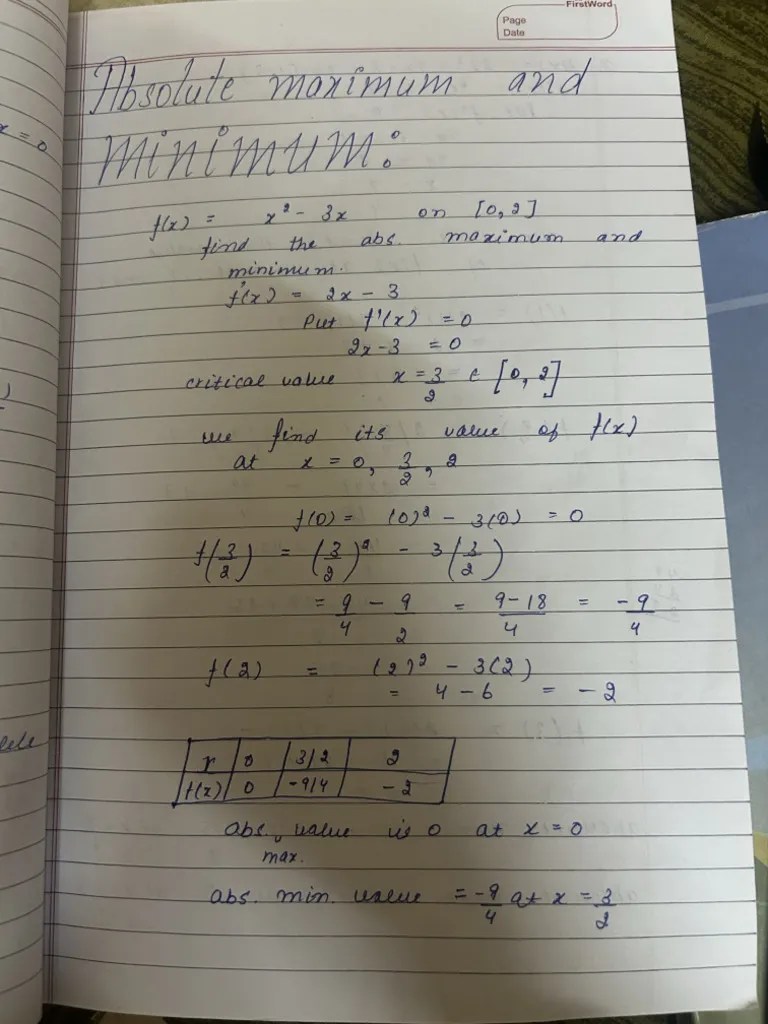 FirstWord
Page
Date
Absolute maximum and
minimum:
f(x) = x² - 3x on [0,2]
find the abs. maximum and
minimum.
f'(x) = 2x - 3
Put f'(x) = 0
2x-3 = 0
critical value x = 3/2 ∈ [0, 2]
we find its value of f(x)
at x = 0, 3/2, 2
f(0) = (0)² - 3(0) = 0
f(3/2) = (3/2)² - 3(3/2)
= 9/4 - 9/2 = 9-18/4 = -9/4
f(2) = (2)² - 3(2)
= 4 - 6 = -2
x 0 3/2 2
f(x) 0 -9/4 -2
abs. max. value is 0 at x = 0
abs. min. value = -9/4 at x = 3/2
x = 0